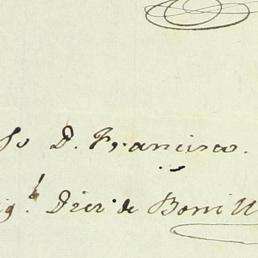 So D. Francisco.
ig.l Diez de Bonill